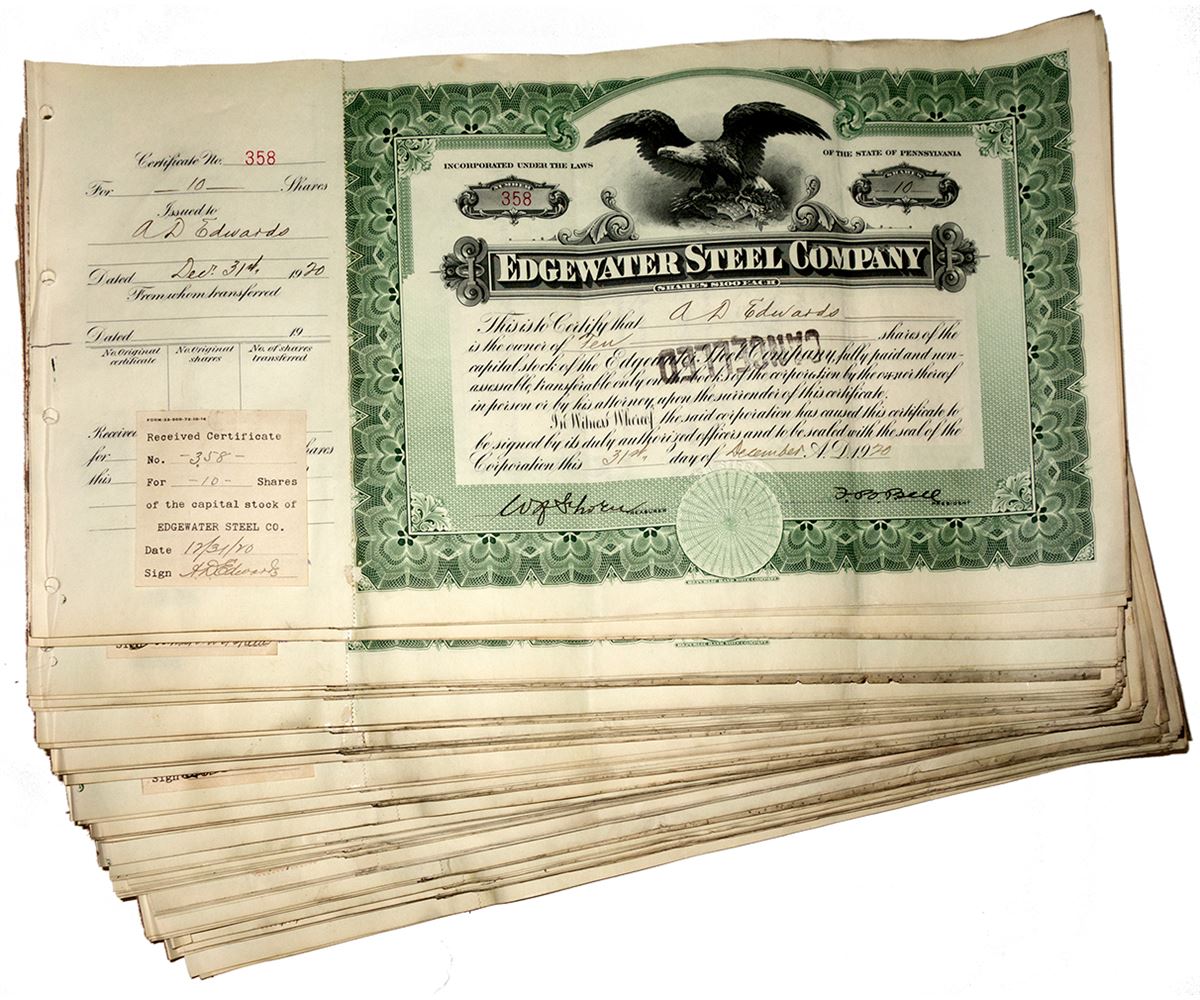 Certificate No. 358
For —10— Shares
Issued to
A D Edwards
Dated Dec. 31st, 1920
From whom transferred
Dated 19
No. Original certificate
No. Original shares
No. of shares transferred
Received
for
this
hares
Received Certificate
No. -358-
For -10- Shares
of the capital stock of
EDGEWATER STEEL CO.
Date 12/31/20
Sign A D Edwards
INCORPORATED UNDER THE LAWS OF THE STATE OF PENNSYLVANIA
NUMBER
358
SHARES
-10-
EDGEWATER STEEL COMPANY
SHARES $100 EACH
This is to Certify that A D Edwards
is the owner of Ten shares of the
capital stock of the Edgewater Steel Company, fully paid and non-
assessable, transferable only on the books of the corporation by the owner thereof
in person or by his attorney, upon the surrender of this certificate.
In Witness Whereof the said corporation has caused this certificate to
be signed by its duly authorized officers and to be sealed with the seal of the
Corporation this 31st. day of December A. D. 1920
CANCELLED
TREASURER
PRESIDENT
REPUBLIC BANK NOTE COMPANY.
Sign
REPUBLIC BANK NOTE COMPANY.
Sign